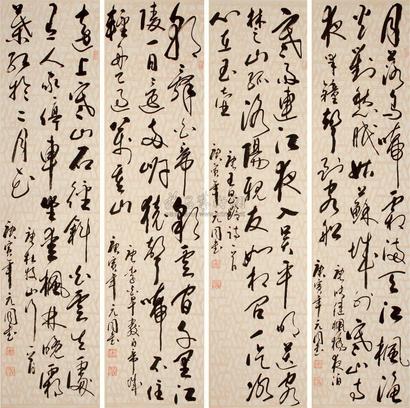 月落烏啼霜滿天江楓漁
火對愁眠姑蘇城外寒山寺
夜半鐘聲到客船
唐張繼楓橋夜泊
庚寅年元
寒雨連江夜入吳平明送客
楚山孤洛陽親友如相問一片冰
心在玉壺
唐王昌齡詩一首
庚寅年元
朝辭白帝彩雲間千里江
陵一日還兩岸猿聲啼不住
輕舟已過萬重山
唐李白早發白帝城
庚寅年元
遠上寒山石徑斜白雲生處
有人家停車坐愛楓林晚霜
葉紅於二月花
唐杜牧山行一首
庚寅年元